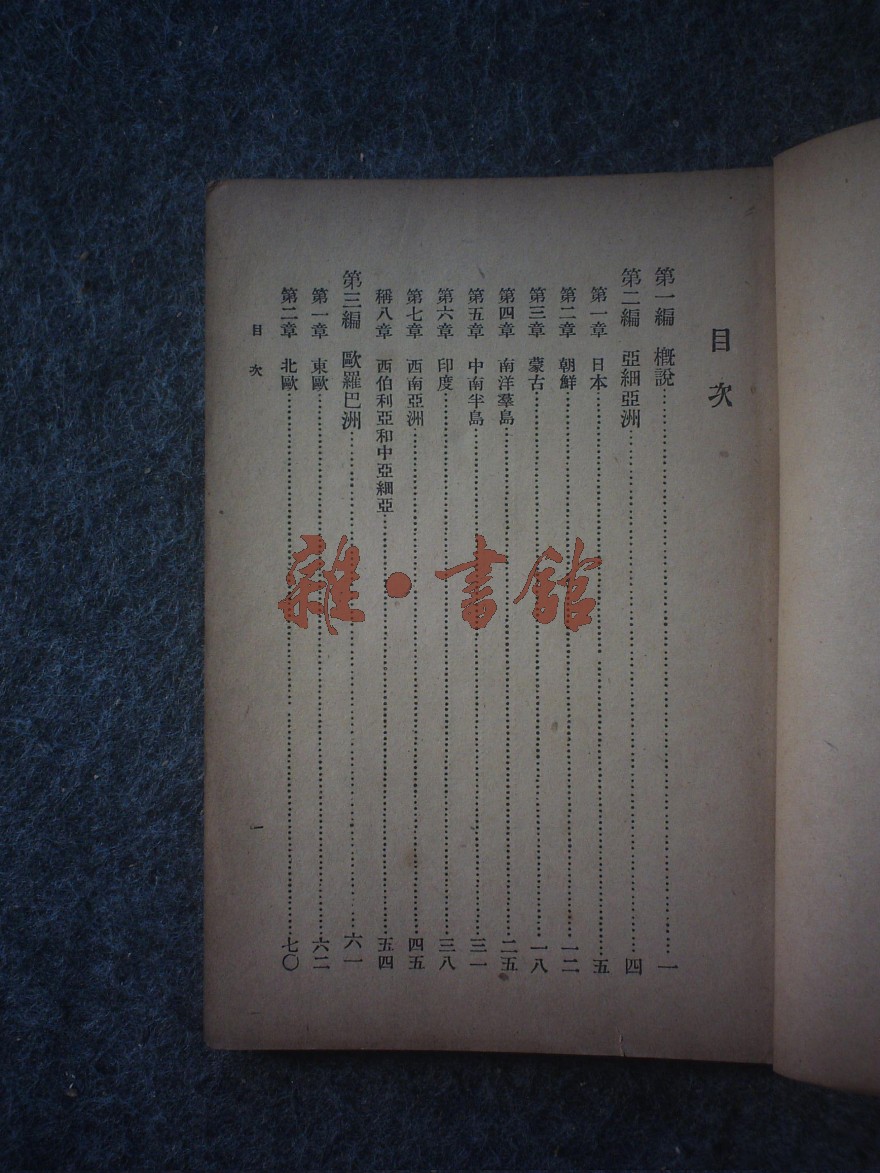 目次
第一編 概說 一
第二編 亞細亞洲 四
第一章 日本 五
第二章 朝鮮 一二
第三章 蒙古 一八
第四章 南洋羣島 二五
第五章 中南半島 三一
第六章 印度 三八
第七章 西南亞洲 四五
稱八章 西伯利亞和中亞細亞 五四
第三編 歐羅巴洲 六一
第一章 東歐 六二
第二章 北歐 七〇
目次 一
雜·書館